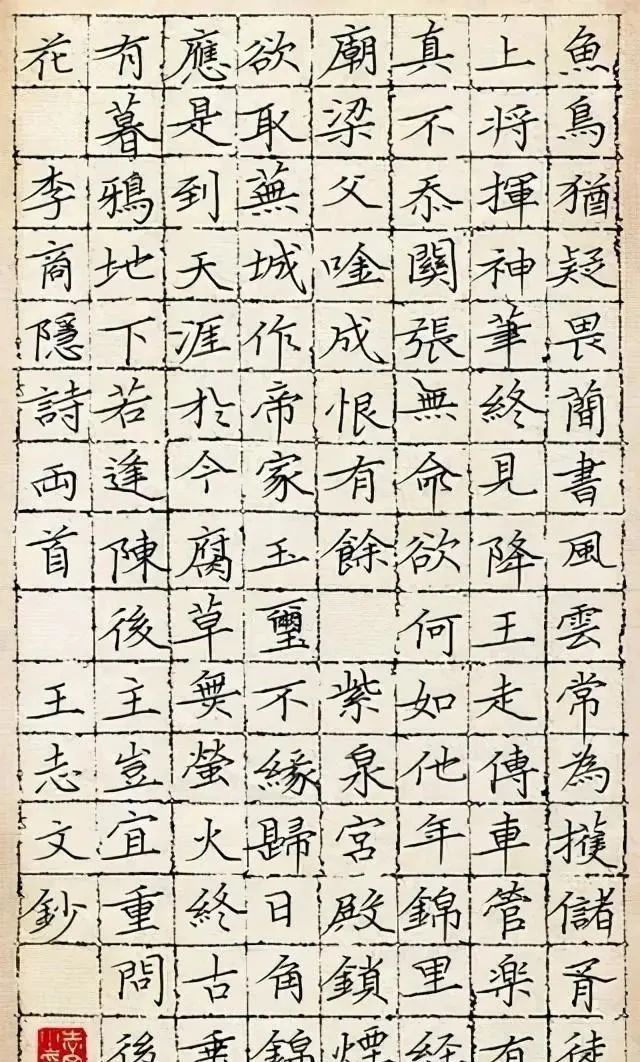 魚鳥猶疑畏簡書風雲常為擁儲胥徒
上將揮神筆終見降王走傳車管樂有
真不忝關張無命欲何如他年錦里經
廟梁父唫成恨有餘 紫泉宮殿鎖煙
欲取蕪城作帝家玉璽不緣歸日角錦
應是到天涯於今腐草無螢火終古垂
有暮鴉地下若逢陳後主豈宜重問後
花 李商隱詩兩首 王志文鈔